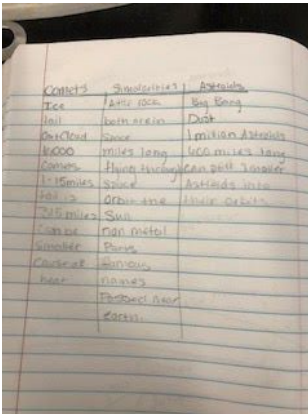 Comets Similarities Astroids
Ice rock Big Bang
tail both are in Dust
Oort Cloud Space 1 million Astroids
miles long 600 miles long
Comets flying through can pull smaller
1-15 miles space Astroids into
tail is orbit the their orbits
miles Sun
Can be non metal
smaller Parts
famous
heat names
Passed near
earth.